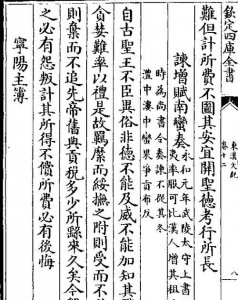 欽定四庫全書
東漢文紀
卷十三
八
難但計所費不圖其安宜開聖德考行所長
諫增賦南蠻奏
永和元年武陵太守上書
夷率服可比漢人增其租
時為尚書令奏諫不從其冬
澧中漊中蠻果爭貢布反
自古聖王不臣異俗非德不能及威不能加知其
貪婪難率以禮是故羈縻而綏撫之附則受而不
則棄而不追先帝舊典貢稅多少所繇來久矣今
之必有怨叛計其所得不償所費必有後悔
寧陽主簿